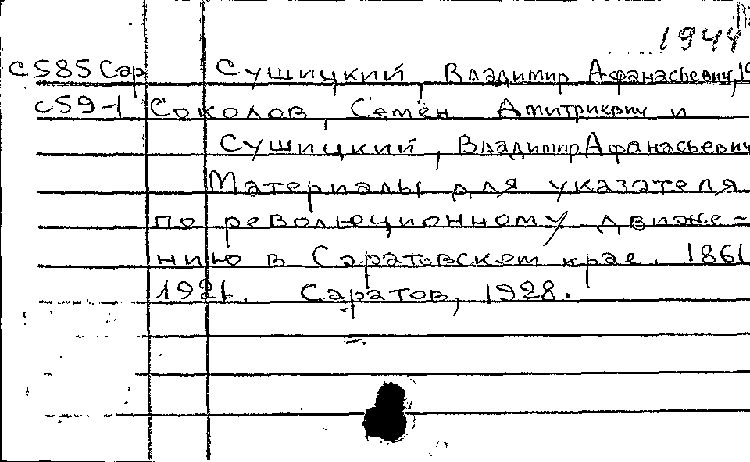 1944
с585Сар Сушицкий, Владимир Афанасьевич, 19
с59-1 Соколов, Семён Дмитриевич и
Сушицкий, Владимир Афанасьевич
Материалы для указателя
по революционному движе=
нию в Саратовском крае. 1861
1921. Саратов, 1928.